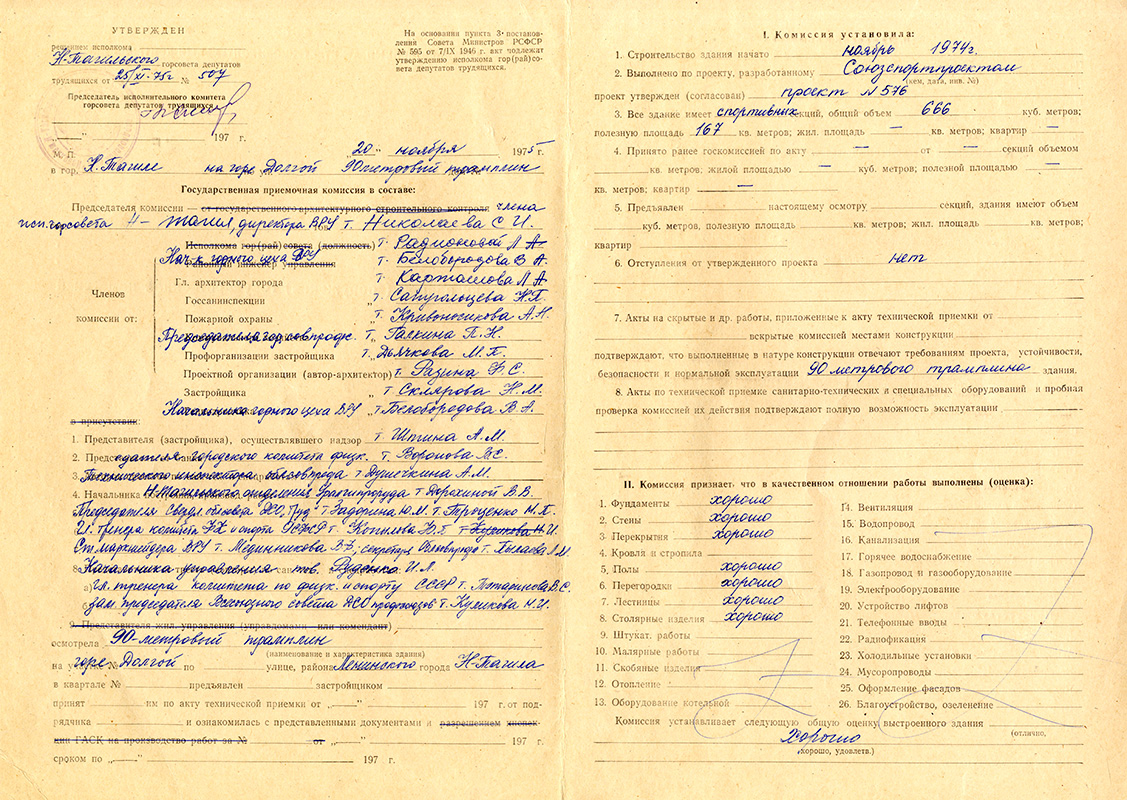 УТВЕРЖДЕН
решением исполкома
Н-Тагильского горсовета депутатов
трудящихся от 25/XI-75г № 507
Председатель исполнительного комитета
горсовета депутатов трудящихся
„ “ 197 г.
М. П.
На основании пункта 3 постанов-
ления Совета Министров РСФСР
№ 595 от 7/IX 1946 г. акт подлежат
утверждению исполкома гор(рай)со-
вета депутатов трудящихся.
„20“ ноября 1975 г.
в гор. Н. Тагиле на горе Долгой 90 метровый трамплин
Государственная приемочная комиссия в составе:
Председателя комиссии — от государственного архитектурного строительного контроля члена
исп. горсовета Н-Тагил, директора ВРУ т. Николаева С. И.
Исполкома гор(рай)совета (должность) т. Радионовой Л А
Нач-к горного цеха ВРУ т. Белобородова В А.
Районный инженер управления
Гл. архитектор города т. Карташова Л А
Членов
комиссии от:
Госсанинспекции т
Пожарной охраны т. Кривоносикова А.Н.
Председателя горсовпроф. т. Галкина П. Н.
Профорганизации застройщика т. Дьячкова М. П.
Проектной организации (автор-архитектор) т. Разина Ф. С.
Застройщика т Склярова Н. М.
Начальника горного цеха ВРУ т Белобородова В. А.
в присутствии:
1. Представителя (застройщика), осуществлявшего надзор т Штина А. М.
2. Председателя городского комитета физк. т. Воронова В.С.
3. Технического инспектора облсовпрофа т Душечкина А. М.
4. Начальника Н.Тагильского отделения Уралгипроруда т Дорохиной В. В.
Председателя Свердл облсовета ДСО „Труд“ т Задорина Ю. М. т Троценко М. П
Ст маркшейдера ВРУ т. Мединникова В
8. Начальника управления тов. Руденко И. Л.
а) Гл. тренера комитета по физк. и спорту СССР т.
зам председателя Всесоюзного совета ДСО профсоюзов т. Куликова Н. И.
9. Представителя жил. управления (управдомами или комендант)
осмотрела 90-метровый трамплин
(наименование и характеристика здания)
на горе Долгой по улице, района Ленинского города Н-Тагила
в квартале № предъявлен застройщиком
принят им по акту технической приемки от „ “ 197 г. от под-
рядчика и ознакомилась с представленными документами и разрешением инспек-
ции ГАСК на производство работ за № от „ “ 197 г.
сроком по „ “ 197 г.
I. Комиссия установила:
1. Строительство здания начато ноябрь 1974г.
2. Выполнено по проекту, разработанному Союзспортпроектом
(кем, дата, инв. №)
проект утвержден (согласован) проект № 576
3. Все здание имеет спортивных секций, общий объем 666 куб. метров;
полезную площадь 167 кв. метров; жил. площадь — кв. метров; квартир —
4. Принято ранее госкомиссией по акту — от — секций объемом
кв. метров; жилой площадью — куб. метров; полезной площадью —
кв. метров; квартир —
5. Предъявлен настоящему осмотру секций, здания имеют объем
куб. метров, полезную площадь кв. метров; жил. площадь кв. метров;
квартир
6. Отступления от утвержденного проекта нет
7. Акты на скрытые и др. работы, приложенные к акту технической приемки от
вскрытые комиссией местами конструкции
подтверждают, что выполненные в натуре конструкции отвечают требованиям проекта, устойчивости,
безопасности и нормальной эксплуатации 90 метрового трамплина здания.
8. Акты по технической приемке санитарно-технических и специальных оборудований и пробная
проверка комиссией их действия подтверждают полную возможность эксплуатации
II. Комиссия признает, что в качественном отношении работы выполнены (оценка):
1. Фундаменты хорошо
2. Стены хорошо
3. Перекрытия хорошо
4. Кровля и стропила
5. Полы хорошо
6. Перегородки хорошо
7. Лестницы хорошо
8. Столярные изделия хорошо
9. Штукат. работы
10. Малярные работы
11. Скобяные изделия
12. Отопление
13. Оборудование котельной
14. Вентиляция
15. Водопровод
16. Канализация
17. Горячее водоснабжение
18. Газопровод и газооборудование
19. Электрооборудование
20. Устройство лифтов
21. Телефонные вводы
22. Радиофикация
23. Холодильные установки
24. Мусоропроводы
25. Оформление фасадов
26. Благоустройство, озеленение
Комиссия устанавливает следующую общую оценку выстроенного здания
(отлично,
хорошо
хорошо, удовлетв.)